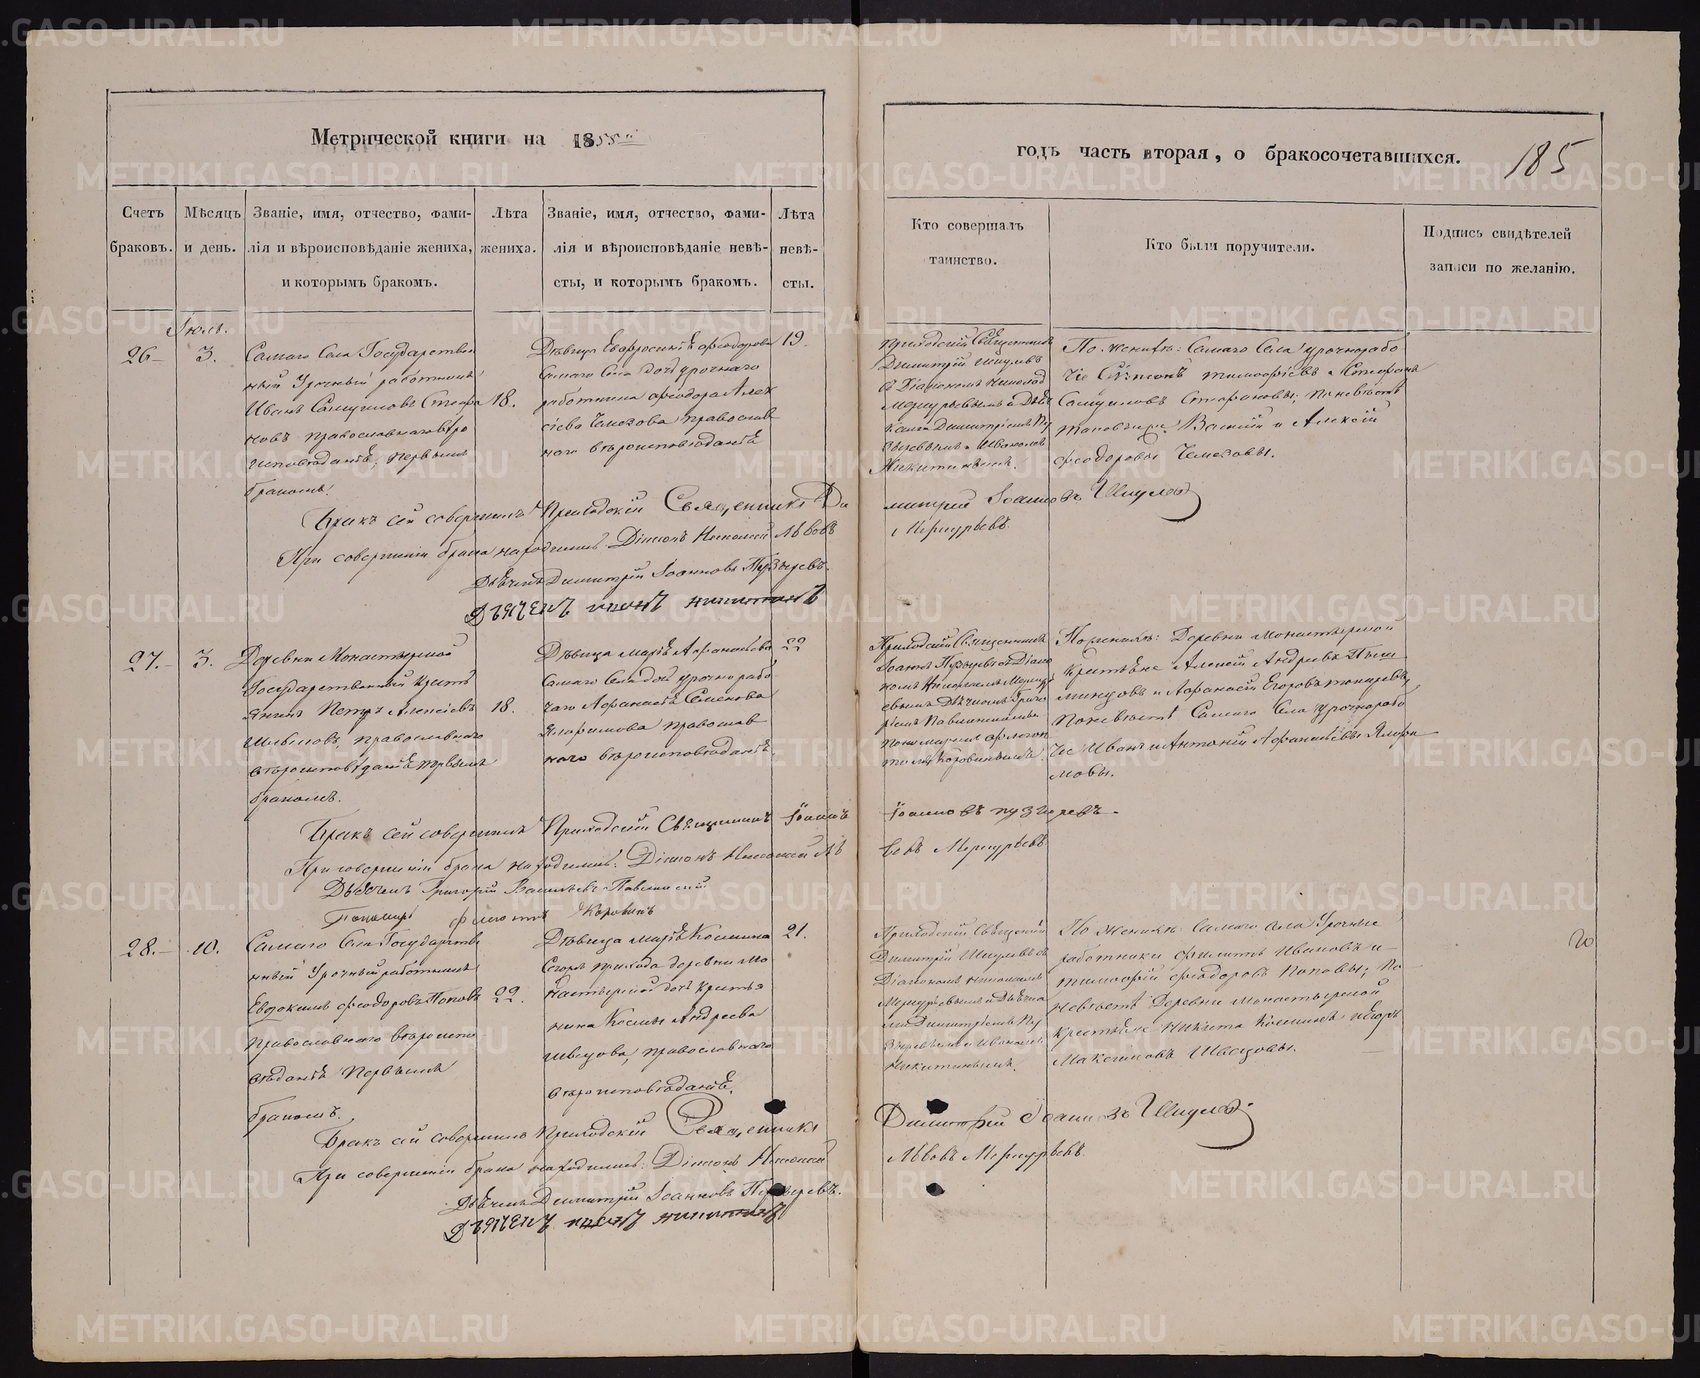 Метрической книги на 1855й
годъ часть вторая, о бракосочетавшихся. 185
Счетъ браковъ.
Мѣсяцъ и день.
Званіе, имя, отчество, фами-
лія и вѣроисповѣданіе жениха,
и которымъ бракомъ.
Лѣта жениха.
Званіе, имя, отчество, фами-
лія и вѣроисповѣданіе невѣ-
сты, и которымъ бракомъ.
Лѣта невѣ-
сты.
Кто совершалъ
таинство.
Кто были поручители.
Подпись свидѣтелей
записи по желанію.
Іюль.
26 3.
Самаго Села Государствен
ный Урочный работникъ
Иванъ Самуиловъ Стефа
новъ православнаго вѣро
исповѣданія, первымъ
бракомъ.
18.
Дѣвица Евфросинія Феодорова
Самаго Села дочь урочнаго
работника Феодора Алек
сіева православ
наго вѣроисповѣданія
19.
Приходскій Священникъ
Димитрій Шишовъ
съ Діакономъ Николаемъ
По женихѣ: Самаго Села урочнорабо
чіе Симеонъ Тимофіевъ и Стефанъ
Самуиловъ Стефановы; по невѣстѣ
таковыеже Василій и Алексій
Феодоровы
Бракъ сей совершилъ Приходскій Священникъ Ди
митрій Іоанновъ
При совершеніи брака находились: Діаконъ Николай Львовъ
Меркурьевъ.
Дьячекъ Димитрій Іоанновъ Пузыревъ.
Дьячекъ Иванъ Никитинъ
27. 3.
Деревни Монастырской
Государственный кресть
янинъ Петръ Алексіевъ
Швецовъ, православнаго
вѣроисповѣданія первымъ
бракомъ.
18.
Дѣвица Марія Афанасіева
Самаго Села дочь урочнорабо
чаго Афанасія Семенова
православ
наго вѣроисповѣданія.
22
Приходскій Священникъ
Іоаннъ Пузыревъ съ Діако
номъ Николаемъ Меркурь
евымъ Дьячкомъ Григо
ріемъ Павлинскимъ
Коровинымъ.
По женихѣ: Деревни Монастырской
крестьяне Алексій Андреевъ
и Афанасій Егоровъ
по невѣстѣ Самаго Села урочнорабо
чіе Иванъ и Антоній Афанасіевы
Бракъ сей совершилъ Приходскій Священникъ Іоаннъ
Іоанновъ Пузыревъ.
При совершеніи брака находились: Діаконъ Николай Ль
вовъ Меркурьевъ.
Дьячекъ Григорій Васильевъ Павлинскій
Пономарь Коровинъ
28. 10.
Самаго Села Государстве
нный Урочный работникъ
Евдокимъ Феодоровъ Поповъ
православнаго вѣроиспо
вѣданія первымъ
бракомъ.
22.
Дѣвица Марія Космина
Сегоже прихода деревни Мо
настырской дочь крестья
нина Космы Андреева
Швецова, православнаго
вѣроисповѣданія.
21.
Приходскій Священникъ
Димитрій
Діакономъ Николаемъ
Меркурьевымъ и Дьячка
ми Димитріемъ Пу
зыревымъ и Иваномъ
Никитинымъ.
По женихѣ Самаго Села Урочные
работники Филиппъ Ивановъ и
Тимофій Феодоровъ Поповы; по
невѣстѣ Деревни Монастырской
крестьяне Никита Косминъ и Егоръ
Максимовъ Швецовы.
20
Бракъ сей совершилъ Приходскій Священникъ
Димитрій Іоанновъ
При совершеніи брака находились: Діаконъ Николай
Львовъ Меркурьевъ.
Дьячекъ Димитрій Іоанновъ Пузыревъ.
Дьячекъ Иванъ Никитинъ
METRIKI.GASO-URAL.RU